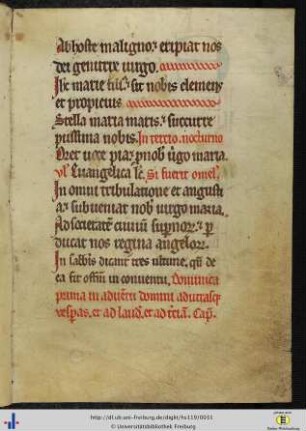 Ab hoste maligno eripiat nos
dei genitrix virgo.
sit nobis clemens
et propicius
Stella maria maris succurre
piissima nobis. In tercio nocturno
voce pia p nob virgo maria.
Euangelica Si fuerit omel
In omni tribulatione et angusti
subveniat nob virgo maria.
Ad societatem civium
ducat nos regina angelor.
In dicunt tres ultime,
in conventu, Dominica
prima in adventu domini ad utrasq
vesperas, et ad laud. et ad Cap.
http://dl.ub.uni-freiburg.de/diglit/hs119/0031
© Universitätsbibliothek Freiburg